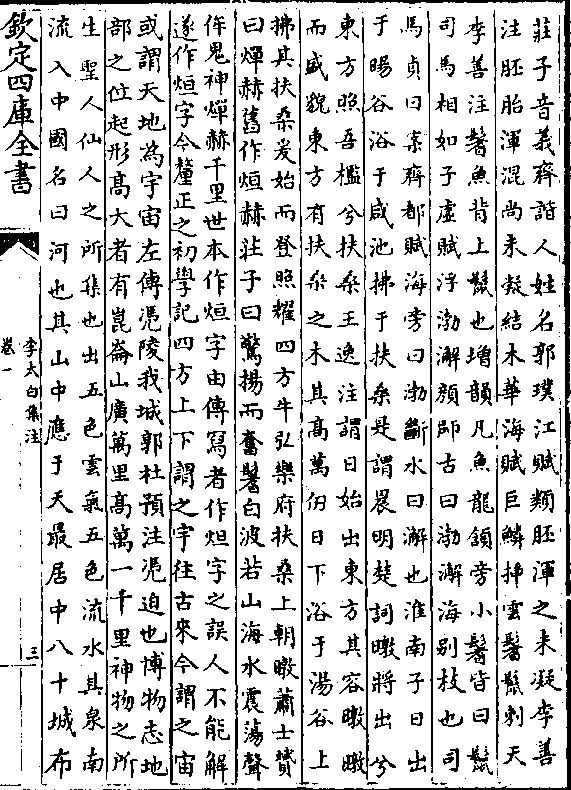 莊子音義齊諧人姓名郭璞江賦類胚渾之未凝李善
注胚胎渾混尚未凝結木華海賦巨鱗揷雲鬐鬛刺天
李善注鬐魚背上鬛也增韻凡魚龍頷旁小鬐皆曰鬛
司馬相如子虛賦浮渤澥顔師古曰渤澥海别枝也司
馬貞曰案齊都賦海旁曰渤斷水曰澥也淮南子日出
于暘谷浴于咸池拂于扶桑是謂晨明楚詞暾將出兮
東方照吾檻兮扶桑王逸注謂日始出東方其容暾暾
而盛貌東方有扶桑之木其髙萬仞日下浴于湯谷上
拂其扶桑爰始而登照耀四方牛弘樂府扶桑上朝暾蕭士贇
曰燀赫舊作烜赫莊子曰驚揚而奮鬐白波若山海水震蕩聲
侔鬼神燀赫千里世本作烜字由傳冩者作烜字之誤人不能解
遂作烜字今釐正之初學記四方上下謂之宇往古來今謂之宙
或謂天地為宇宙左傳馮陵我城郭杜預注馮迫也博物志地
部之位起形髙大者有崑崙山廣萬里髙萬一千里神物之所
生聖人仙人之所集也出五色雲氣五色流水其泉南
流入中國名曰河也其山中應于天最居中八十城布
欽定四庫全書
李太白集注
卷一
三